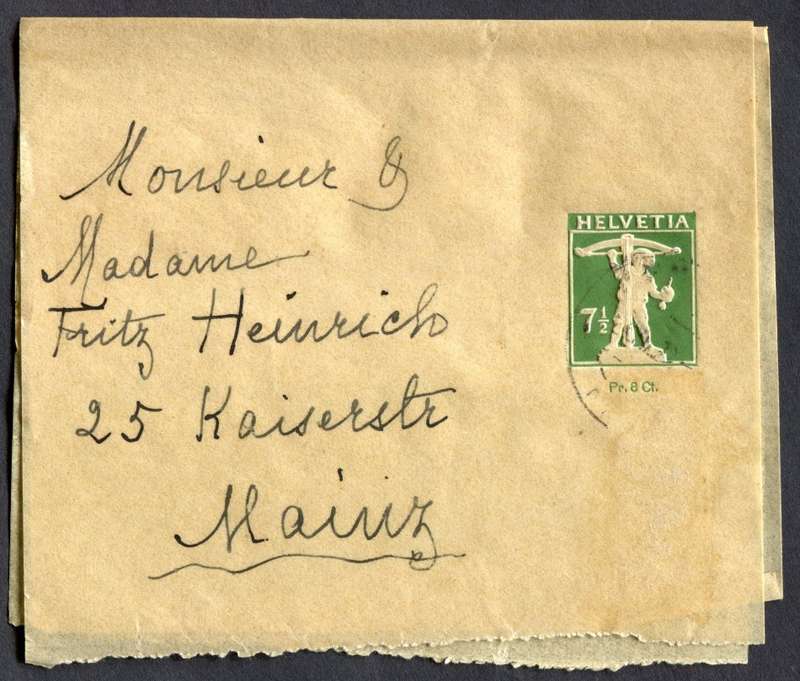 Monsieur &
Madame
Fritz Heinrich
25 Kaiserstr
Mainz
HELVETIA
7½
Pr. 8 Ct.